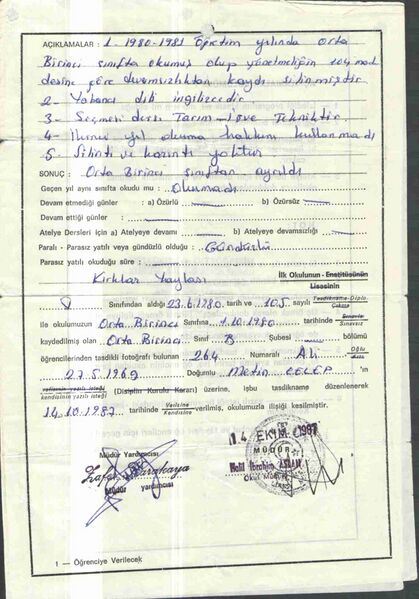 AÇIKLAMALAR : 1- 1980-1981 Öğretim yılında Orta
Birinci sınıfta okumuş olup yönetmeliğin 104 mad
desine göre devamsızlıktan kaydı silinmiştir
2- Yabancı dili ingilizcedir
3- Seçmeli dersi Tarım-İş ve Tekniktir
4- yıl okuma hakkını kullanmadı
5- Silinti ve kazıntı yoktur
SONUÇ : Orta Birinci sınıftan ayrıldı
Geçen yıl aynı sınıfta okudu mu : Okumadı
Devam etmediği günler : a) Özürlü : b) Özürsüz :
Devam ettiği günler :
Atelye Dersleri için a) Atelyeye devamı : b) Atelyeye devamsızlığı :
Paralı - Parasız yatılı veya gündüzlü olduğu : Gündüzlü
Parasız yatılı okuduğu süre :
Kırklar Yaylası İlk Okulunun - Enstitüsünün
Lisesinin
Sınıfından aldığı 23.6.1980 tarih ve 105 sayılı Tasdikname - Diplo.
ile okulumuzun Orta Birinci Sınıfına 1.10.1980 tarihinde Sınavla
Sınavsız
kaydedilmiş olan Orta Birinci Sınıf B Şubesi bölümü
öğrencilerinden tasdikli fotoğrafı bulunan 264 Numaralı Ali Oğlu
Kızı
27.5.1969 Doğumlu Metin CELEP ın
velisinin yazılı isteği
kendisinin yazılı isteği (Disiplin Kurulu Kararı) üzerine, işbu tasdikname düzenlenerek
14.10.1987 tarihinde Velisine
Kendisine verilmiş, okulumuzla ilişiği kesilmiştir.
14 EKİM 1987
Müdür Yardımcısı
MÜDÜR
Halil İbrahim
Okul Müdürü
Müdür yardımcısı
1 — Öğrenciye Verilecek